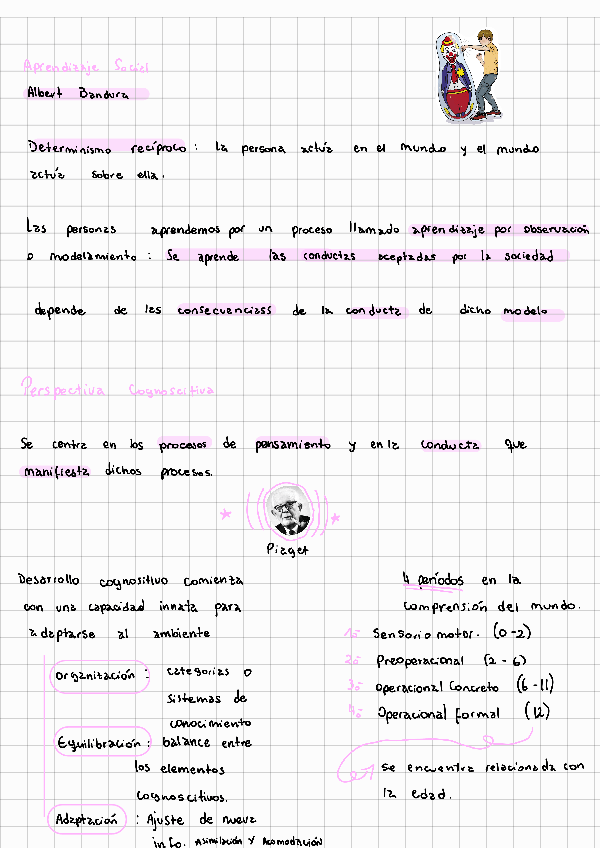 Aprendizaje Social
Albert Bandura
Determinismo recíproco: la persona actúa en el mundo y el mundo
actúa sobre ella.
Las personas aprendemos por un proceso llamado aprendizaje por observación
o modelamiento: Se aprende las conductas aceptadas por la sociedad
depende de las consecuenciass de la conducta de dicho modelo
Perspectiva Cognoscitiva
Se centra en los procesos de pensamiento y en la conducta que
manifiesta dichos procesos.
Piaget
Desarrollo cognositivo comienza
con una capacidad innata para
adaptarse al ambiente
Organización: categorías o
sistemas de
conocimiento
Equilibración: balance entre
los elementos
cognoscitivos.
Adaptación: Ajuste de nueva
info. Asimilación y Acomodación
4 períodos en la
comprensión del mundo.
1º- Sensorio motor. (0-2)
2º- Preoperacional (2-6)
3º- Operacional Concreto (6-11)
4º- Operacional Formal (12)
se encuentra relacionada con
la edad.